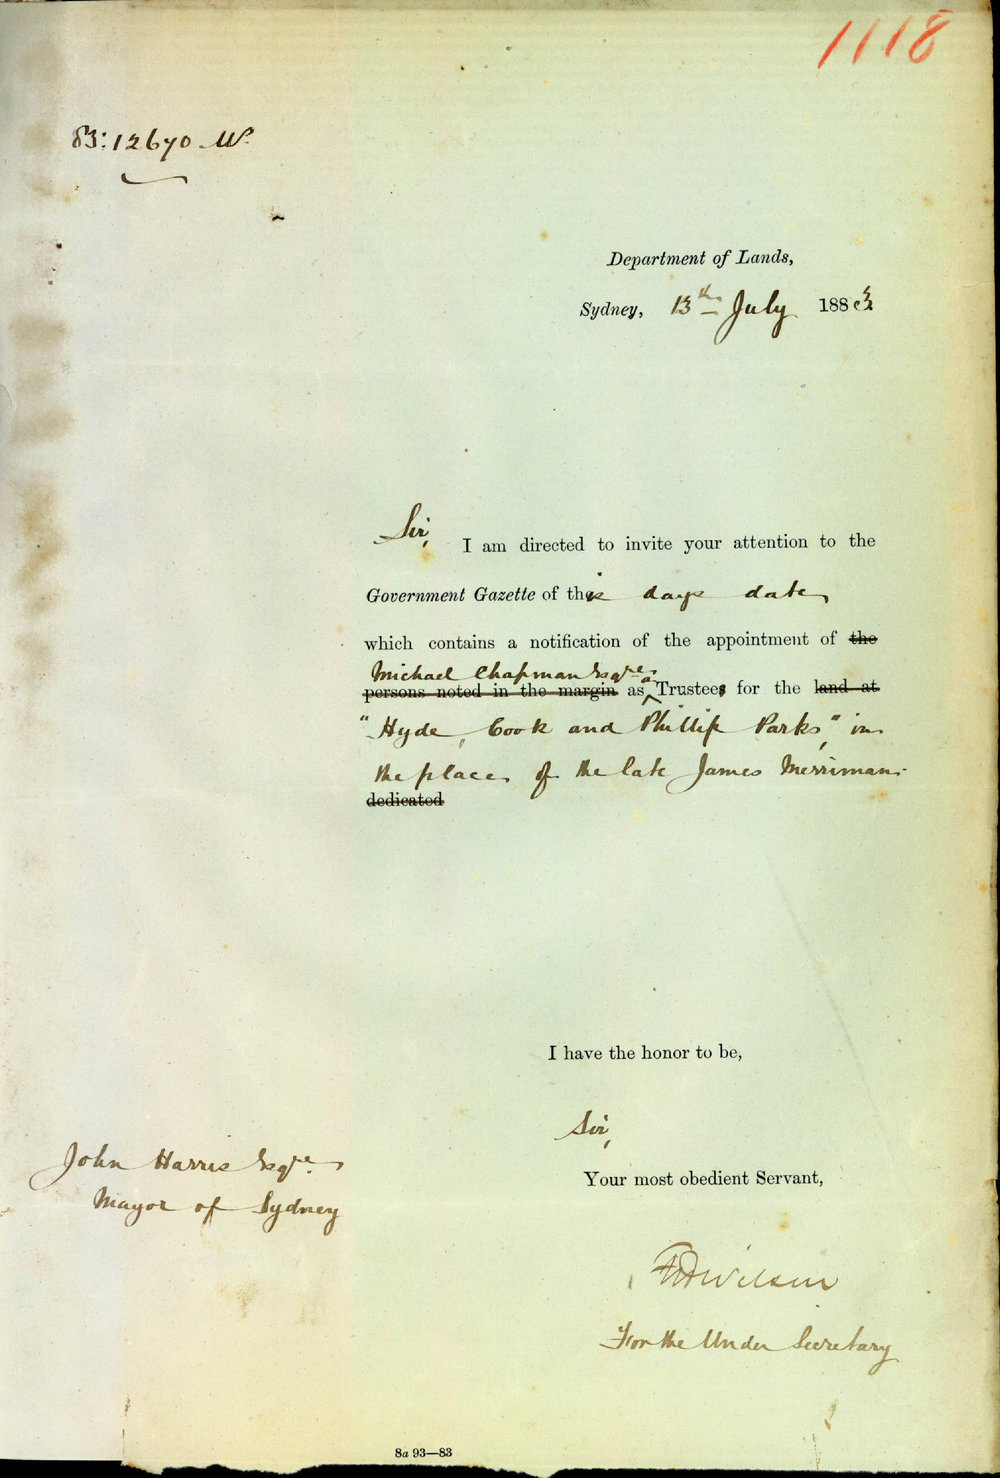 1118
83:12670 M.
Department of Lands,
Sydney, 13th July 1883
Sir,
I am directed to invite your attention to the
Government Gazette of this days date,
which contains a notification of the appointment of the
Michael Chapman Esqre
persons noted in the margin as a Trustees for the land at
"Hyde, Cook and Phillip Parks," in
the place of the late James Merriman.
dedicated
I have the honor to be,
Sir,
Your most obedient Servant,
John Harris Esqre
Mayor of Sydney
Wilson
For the Under Secretary
8a 93—83